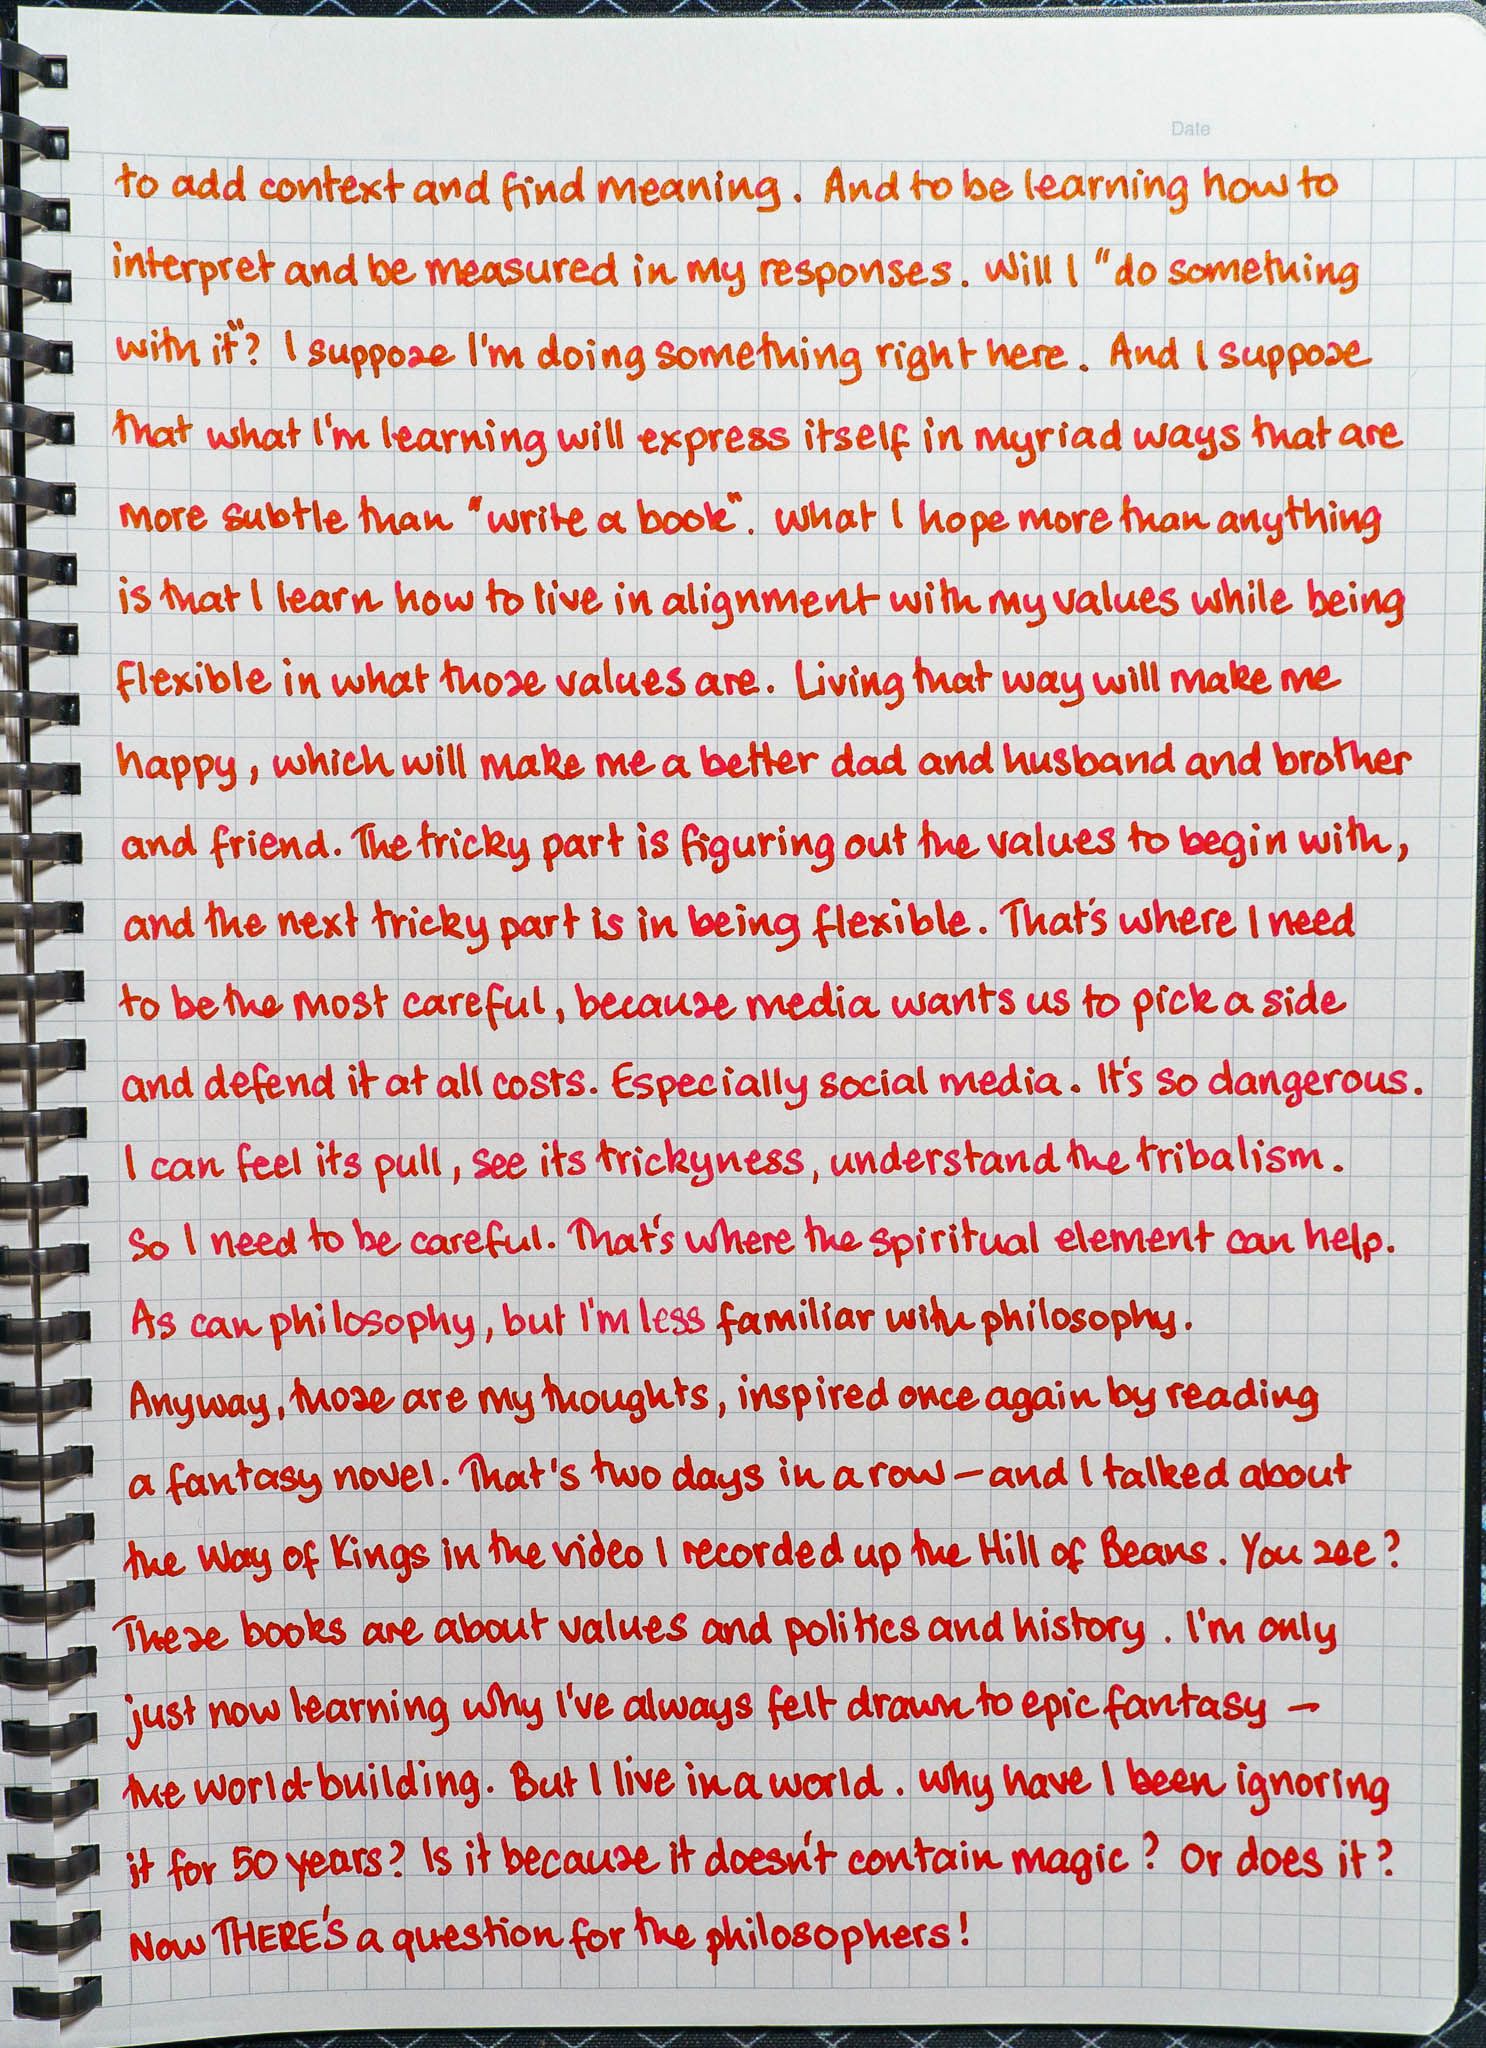 Date
to add context and find meaning. And to be learning how to
interpret and be measured in my responses. Will I "do something
with it"? I suppose I'm doing something right here. And I suppose
that what I'm learning will express itself in myriad ways that are
more subtle than "write a book". What I hope more than anything
is that I learn how to live in alignment with my values while being
flexible in what those values are. Living that way will make me
happy, which will make me a better dad and husband and brother
and friend. The tricky part is figuring out the values to begin with,
and the next tricky part is in being flexible. That's where I need
to be the most careful, because media wants us to pick a side
and defend it at all costs. Especially social media. It's so dangerous.
I can feel its pull, see its trickyness, understand the tribalism.
So I need to be careful. That's where the spiritual element can help.
As can philosophy, but I'm less familiar with philosophy.
Anyway, those are my thoughts, inspired once again by reading
a fantasy novel. That's two days in a row — and I talked about
the Way of Kings in the video I recorded up the Hill of Beans. You see?
These books are about values and politics and history. I'm only
just now learning why I've always felt drawn to epic fantasy —
the world-building. But I live in a world. Why have I been ignoring
it for 50 years? Is it because it doesn't contain magic? Or does it?
Now THERE'S a question for the philosophers!